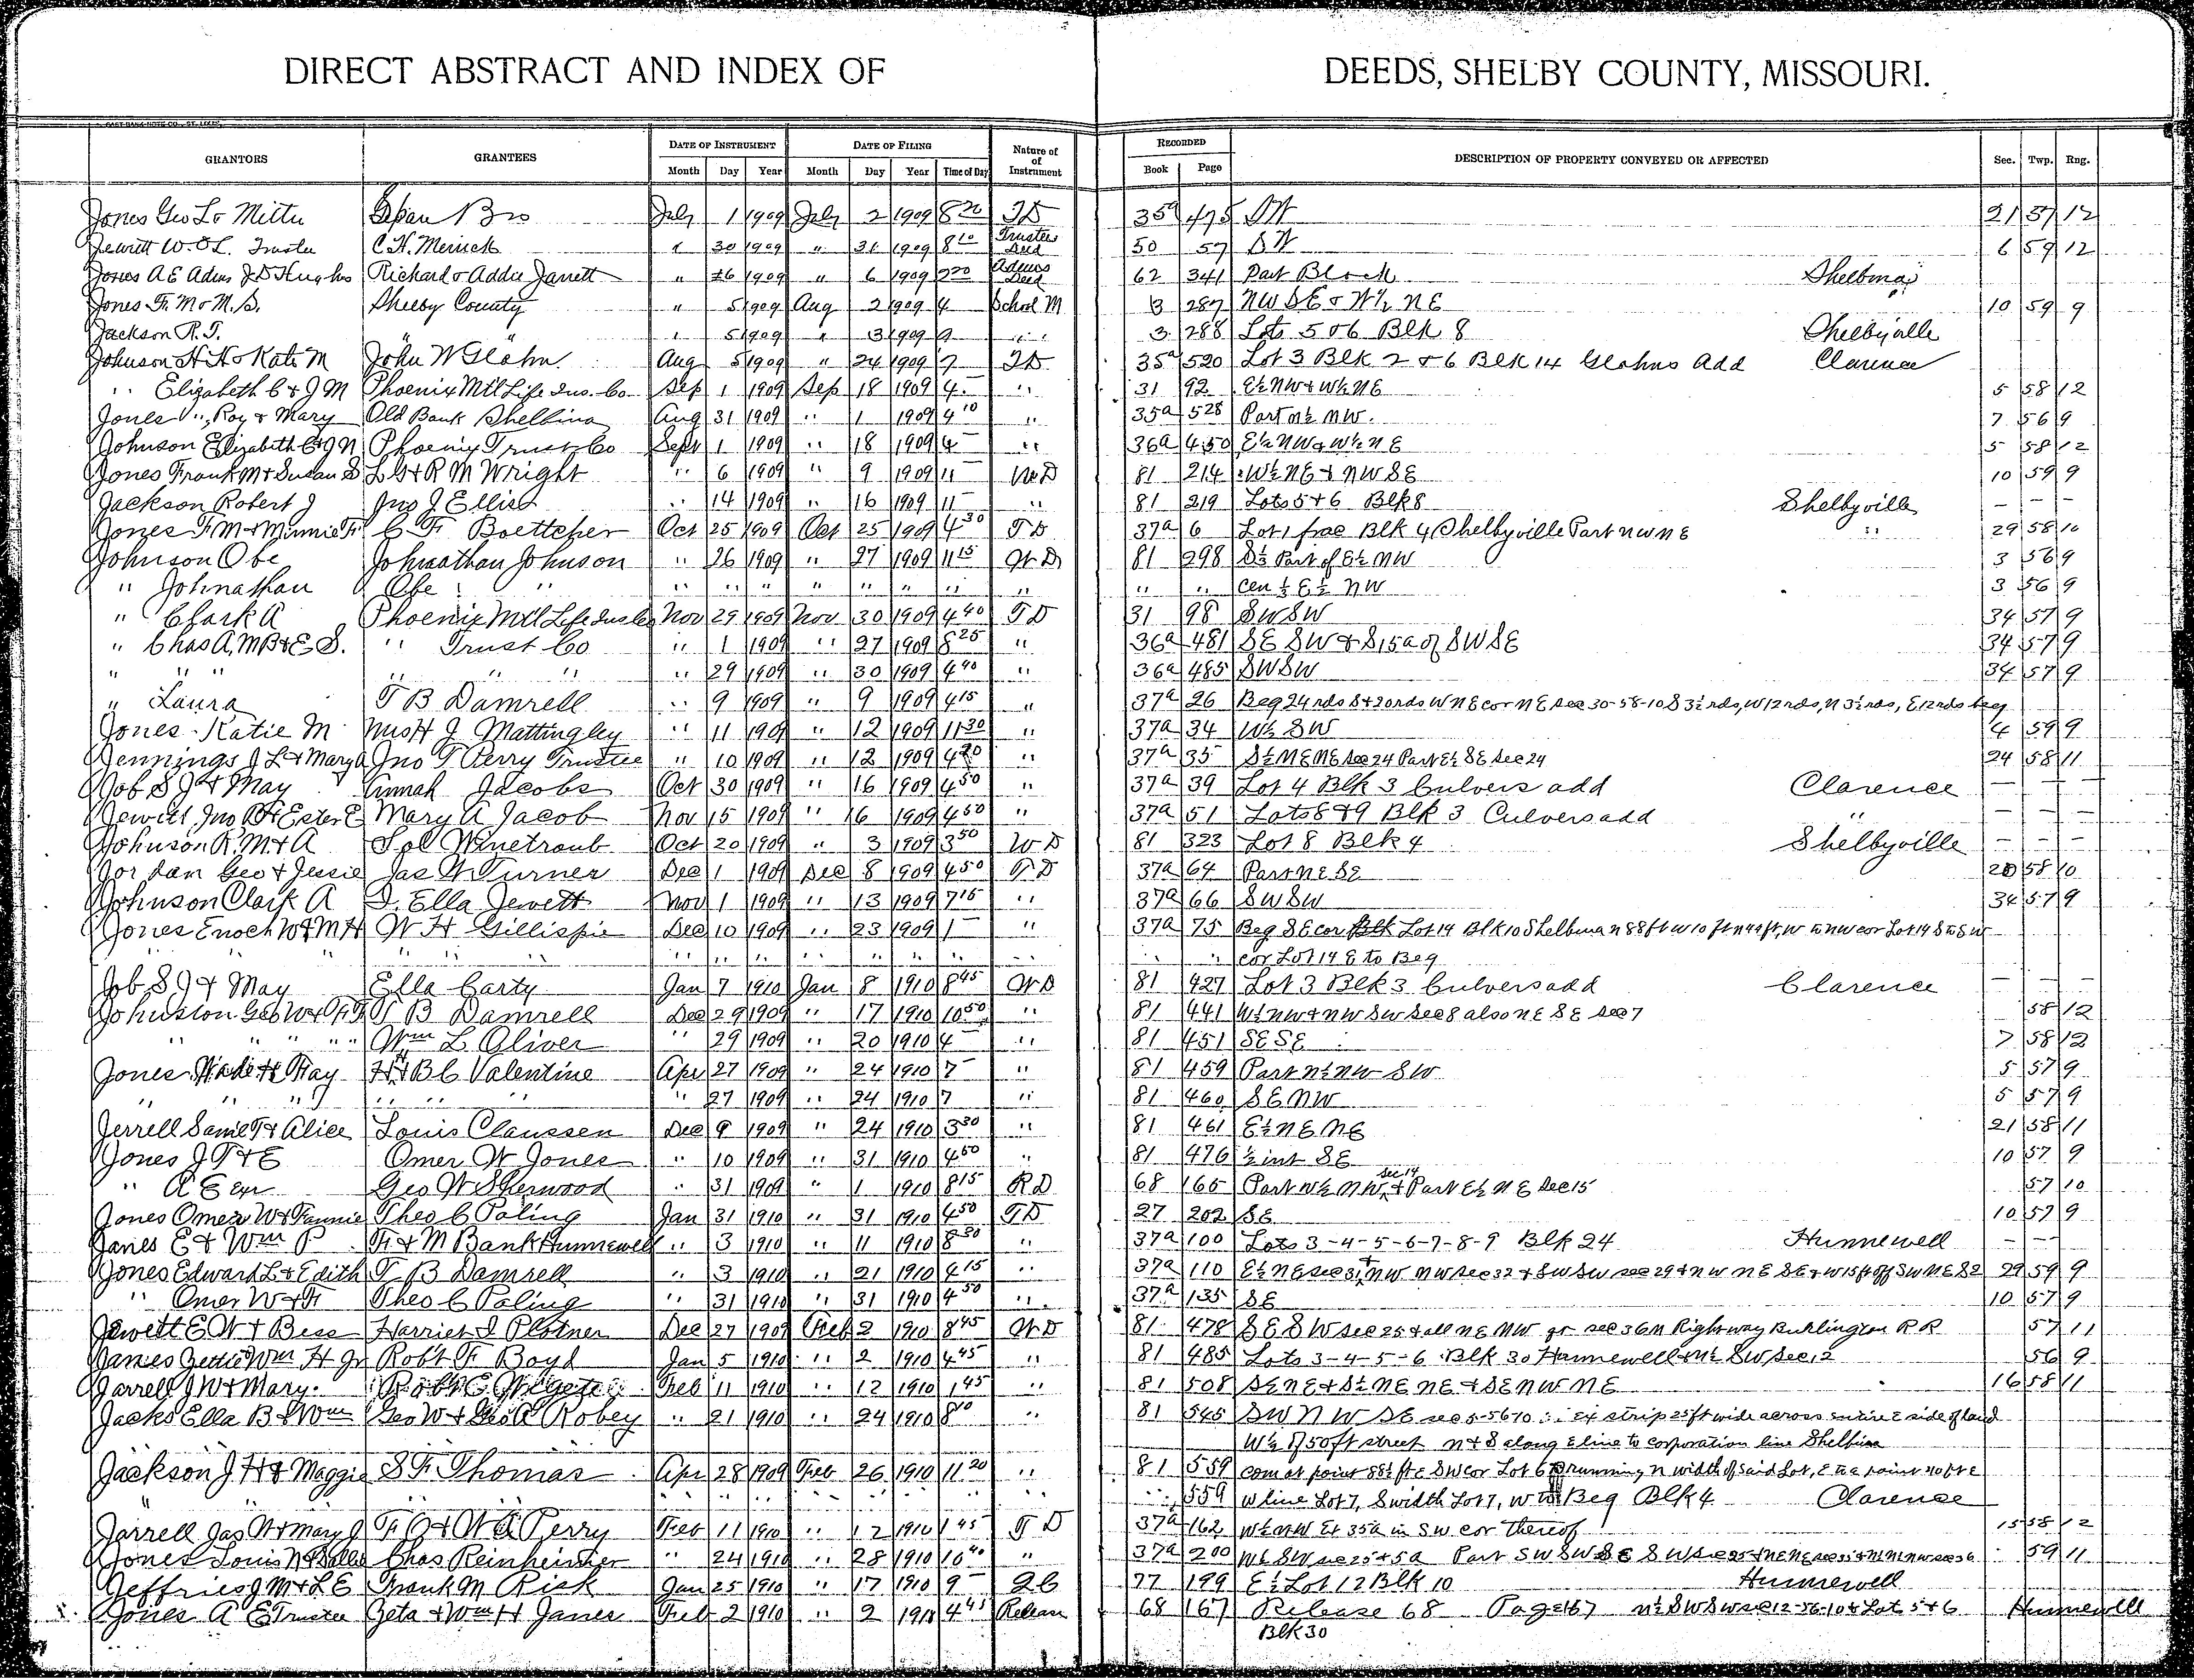 DIRECT ABSTRACT AND INDEX OF DEEDS, SHELBY COUNTY, MISSOURI.
GRANTORS GRANTEES DATE OF INSTRUMENT DATE OF FILING Nature of Instrument RECORDED DESCRIPTION OF PROPERTY CONVEYED OR AFFECTED Sec. Twp. Rng.
Month Day Year Month Day Year Time of Day Book Page
Jones Geo L & Mittu Bro July 1 1909 July 2 1909 8 TD 35a 475 21 57 12
Jewett W.O.L. Trustee C.H. Merrick " 30 1909 " 31 1909 8 10 Trustees Deed 50 57 SW 6 59 12
Jones A E Admr J D Hughes Richard & Addie Jarrett " 26 1909 " 6 1909 2 Admrs Deed 62 341 Part Block Shelbina
Jones F. M & M. S. Shelby County " 5 1909 Aug 2 1909 4 School M 3 287 NW SE & W½ NE 10 59 9
Jackson R. J. " " 5 1909 " 3 1909 9 " " 3 288 Lots 5 & 6 Blk 8 Shelbyville
Johnson H H & Kate M John W Glahn Aug 5 1909 " 24 1909 7 TD 35a 520 Lot 3 Blk 2 & 6 Blk 14 Glahns Add Clarence
" Elizabeth C & J M Phoenix Mtl Life Ins. Co Sep 1 1909 Sep 18 1909 4 " 31 92 E½ NW & W½ NE 5 58 12
Jones V", Roy & Mary Old Bank Shelbina Aug 31 1909 " 1 1909 4 10 " 35a 528 Part N½ NW. 7 56 9
Johnson Elizabeth C & J M Phoenix Trust Co Sept 1 1909 " 18 1909 4 " 36a 450 E½ NW & W½ NE 5 58 12
Jones Frank M & Susan S L G & R M Wright " 6 1909 " 9 1909 11 WD 81 214 W½ NE & NW SE 10 59 9
Jackson Robert J Jno J Ellis " 14 1909 " 16 1909 11 " 81 219 Lots 5 & 6 Blk 8 Shelbyville — —
Jones F. M & Minnie F. C F Boettcher Oct 25 1909 Oct 25 1909 4 30 TD 37a 6 Lot 1 frac Blk 4 Shelbyville Part NW NE " 29 58 10
Johnson Obe Johnathan Johnson " 26 1909 " 27 1909 11 15 WD 81 298 S½ Part of E½ NW 3 56 9
" Johnathan Obe " " " " " " " " " " " Cen ⅓ E½ NW 3 56 9
" Clark A Phoenix Mtl Life Ins Co Nov 29 1909 Nov 30 1909 4 40 TD 31 98 SW SW 34 57 9
" Chas A, M B & E S. " Trust Co " 1 1909 " 27 1909 8 25 " 36a 481 SE SW & S 15a of SW SE 34 57 9
" " " " " " " 29 1909 " 30 1909 4 40 " 36a 485 SW SW 34 57 9
" Laura T B Damrell " 9 1909 " 9 1909 4 15 " 37a 26 Beg 24 rds S & 20 rds W NE cor NE sec 30-58-10 S 3½ rds, W 12 rds, N 3½ rds, E 12 rds beg
Jones Katie M J Mattingley " 11 1909 " 12 1909 11 30 " 37a 34 W½ SW 4 59 9
Jennings J L & Mary A Jno T Perry Trustee " 10 1909 " 12 1909 4 20 " 37a 35 S½ NE NE sec 24 Part E½ SE sec 24 24 58 11
Job S J & May Annah Jacobs Oct 30 1909 " 16 1909 4 50 " 37a 39 Lot 4 Blk 3 Culvers add Clarence — — —
Jewett Jno R & Ester E Mary A Jacob Nov 15 1909 " 16 1909 4 50 " 37a 51 Lots 8 & 9 Blk 3 Culvers add " — — —
Johnson R. M. & A Sol Winetraub Oct 20 1909 " 3 1909 3 50 WD 81 323 Lot 8 Blk 4 Shelbyville — — —
Jordan Geo & Jessie Jas W Turner Dec 1 1909 Dec 8 1909 4 50 TD 37a 64 Part NE SE 20 58 10
Johnson Clark A D. Ella Jewett Nov 1 1909 " 13 1909 7 15 " 37a 66 SW SW 34 57 9
Jones Enoch W & M H W H Gillispie Dec 10 1909 " 23 1909 1 " 37a 75 Beg SE cor Lot 14 Blk 10 Shelbina N 88 ft W 10 ft N 44 ft, W to NW cor Lot 14 S to SW
" " " " " " " " " " " " " cor Lot 14 E to Beg
Job S J & May Ella Carty Jan 7 1910 Jan 8 1910 8 45 WD 81 427 Lot 3 Blk 3 Culvers add Clarence — — —
Johnston Geo W & T B Damrell Dec 29 1909 " 17 1910 10 50 " 81 441 W½ NW & NW SW sec 8 also NE SE sec 7 58 12
" " " " Wm L Oliver " 29 1909 " 20 1910 4 " 81 451 SE SE 7 58 12
Jones Wade H & May H & B C Valentine Apr 27 1909 " 24 1910 7 " 81 459 Part N½ NW SW 5 57 9
" " " " " " " 27 1909 " 24 1910 7 " 81 460 SE NW 5 57 9
Jerrell Saml T & Alice Louis Claussen Dec 9 1909 " 24 1910 3 30 " 81 461 E½ NE NE 21 58 11
Jones J T & E Omer W Jones " 10 1909 " 31 1910 4 50 " 81 476 ½ int SE 10 57 9
" A E exr Geo W Sherwood " 31 1909 " 1 1910 8 15 RD 68 165 Part W½ NW sec 14 & Part E½ NE sec 15 57 10
Jones Omer W & Fannie Theo C Poling Jan 31 1910 " 31 1910 4 50 TD 27 202 SE 10 57 9
Janes E & Wm P F & M Bank Hunnewell " 3 1910 " 11 1910 8 30 " 37a 100 Lots 3-4-5-6-7-8-9 Blk 24 Hunnewell — —
Jones Edward L & Edith T B Damrell " 3 1910 " 21 1910 4 15 " 37a 110 E½ NE sec 31 & NW NW sec 32 & SW SW sec 29 & NW NE SE & W 15 ft off SW NE SE 29 59 9
" Omer W & F Theo C Poling " 31 1910 " 31 1910 4 50 " 37a 135 SE 10 57 9
Jewett E W & Bess Harriet I Plotner Dec 27 1909 Feb 2 1910 8 45 WD 81 478 SE SW sec 25 & all NE NW sec 36 N Right way Burlington R R 57 11
James Gettie Wm H Jr Robt F Boyd Jan 5 1910 " 2 1910 4 45 " 81 485 Lots 3-4-5-6 Blk 30 Hunnewell & N½ SW sec 12 56 9
Jarrell J W & Mary Feb 11 1910 " 12 1910 1 45 " 81 508 SE NE & S½ NE NE & SE NW NE 16 58 11
Jacks Ella B & Wm Geo W & Robey " 21 1910 " 24 1910 8 10 " 81 545 SW NW SE sec 5-56-10 Ex strip 25 ft wide across entire E side of land
W½ of 50 ft street N & S along E line to corporation line Shelbina
Jackson J H & Maggie S F Thomas Apr 28 1909 Feb 26 1910 11 20 " 81 559 com at point 58½ ft E SW cor Lot 6 running N width of said Lot, E to a point 40 ft E
" " " " " " " " " 559 W line Lot 7, S width Lot 7, W to Beg Blk 4 Clarence
Jarrell Jas W & Mary J F & W A Perry Feb 11 1910 " 12 1910 1 45 TD 37a 162 W½ NW Ex 35a in SW cor thereof 15 58 12
Jones Louis N & Chas Reinheimer " 24 1910 " 28 1910 10 40 " 37a 200 W½ SW sec 25 & 5a Part SW SW SE 59 11
Jeffries J M & L E Frank M Risk Jan 25 1910 " 17 1910 9 QC 77 199 E½ Lot 12 Blk 10 Hunnewell
Jones A E Trustee Zeta & Wm H Janes Feb 2 1910 " 2 1910 4 45 Release 68 167 Release 68 Page 167 N½ SW SW sec 12-56-10 & Lot 5 & 6 Hunnewell
Blk 30